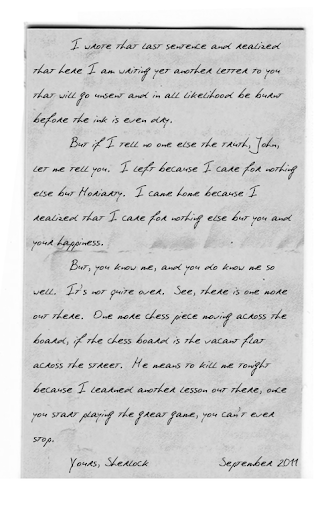 I wrote that last sentence and realized
that here I am writing yet another letter to you
that will go unsent and in all likelihood be burnt
before the ink is even dry.
But if I tell no one else the truth, John,
let me tell you. I left because I care for nothing
else but Moriarty. I came home because I
realized that I care for nothing else but you and
your happiness.
But, you know me, and you do know me so
well. It's not quite over. See, there is one more
out there. One more chess piece moving across the
board, if the chess board is the vacant flat
across the street. He means to kill me tonight
because I learned another lesson out there, once
you start playing the great game, you can't ever
stop.
Yours, Sherlock September 2011